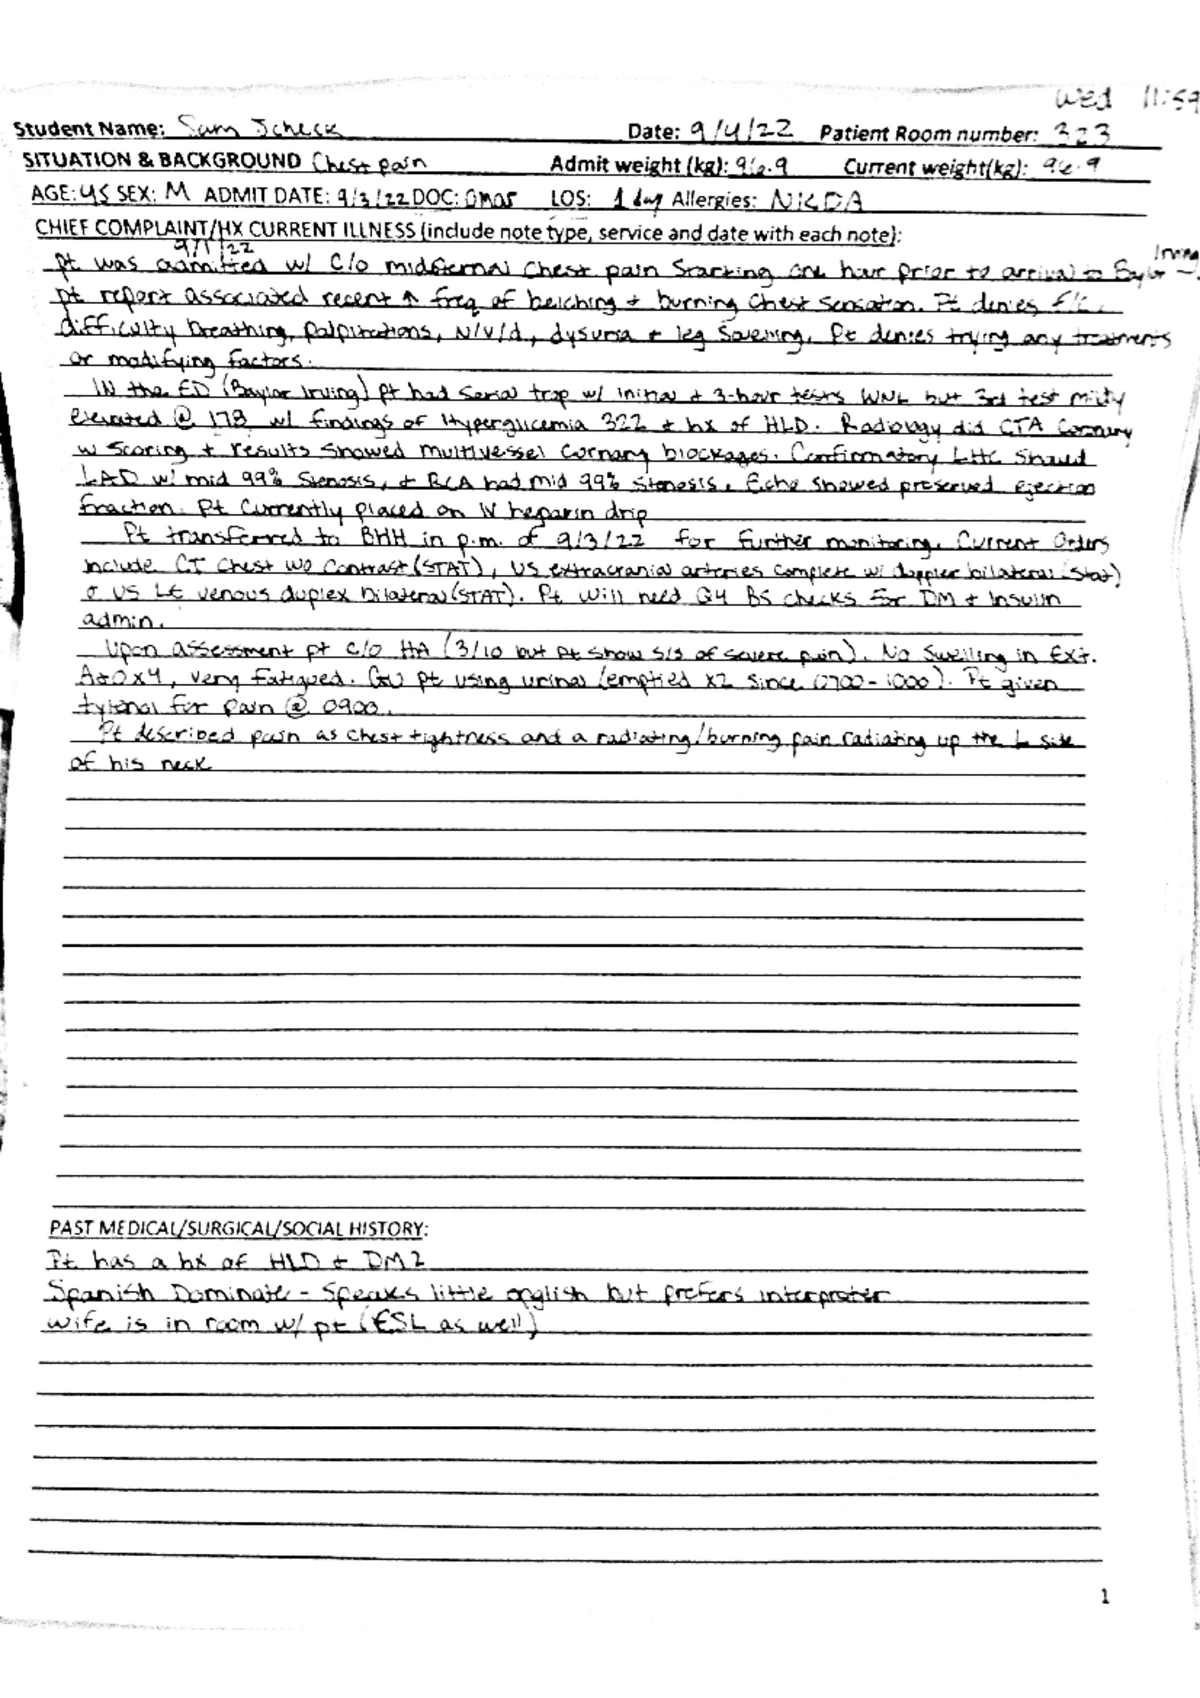 Wed 11:59
Student Name: Sam Scheck Date: 9/4/22 Patient Room number: 323
SITUATION & BACKGROUND Chest pain Admit weight (kg): 96.9 Current weight(kg): 96.9
AGE: 45 SEX: M ADMIT DATE: 9/3/22 DOC: Omar LOS: 1 day Allergies: NKDA
CHIEF COMPLAINT/HX CURRENT ILLNESS (include note type, service and date with each note):
9/1/22 Irving
Pt was admitted w/ c/o midsternal chest pain starting one hour prior to arrival to Baylor
pt report associated recent ↑ freq of belching + burning chest sensation. Pt denies f/c,
difficulty breathing, palpitations, N/v/d, dysuria + leg swelling. Pt denies trying any treatments
or modifying factors.
IN the ED (Baylor Irving) pt had serial trop w/ initial + 3-hour tests WNL but 3rd test mildly
elevated @ 178 w/ findings of Hyperglycemia 322 + hx of HLD. Radiology did CTA Coronary
w scoring + results showed multivessel cornary blockages. Confirmatory LHC showed
LAD w/ mid 99% stenosis, + RCA had mid 99% stenosis. Echo showed preserved ejection
fraction. Pt currently placed on IV heparin drip
Pt transferred to BHH in p.m. of 9/3/22 for further monitoring. Current orders
include CT Chest wo contrast (STAT), US extracranial arteries complete w/ doppler bilateral (stat)
+ US LE venous duplex bilateral (STAT). Pt will need Q4 BS checks for DM + insulin
admin.
Upon assessment pt c/o HA (3/10 but pt show s/s of severe pain). No swelling in Ext.
A&Ox4, very fatigued. GU pt using urinal (emptied x2 since 0700-1000). Pt given
tylenol for pain @ 0900.
Pt described pain as chest tightness and a radiating/burning pain radiating up the L side
of his neck
PAST MEDICAL/SURGICAL/SOCIAL HISTORY:
Pt has a hx of HLD + DM2
Spanish Dominate - Speaks little english but prefers interpreter
wife is in room w/ pt (ESL as well)
1